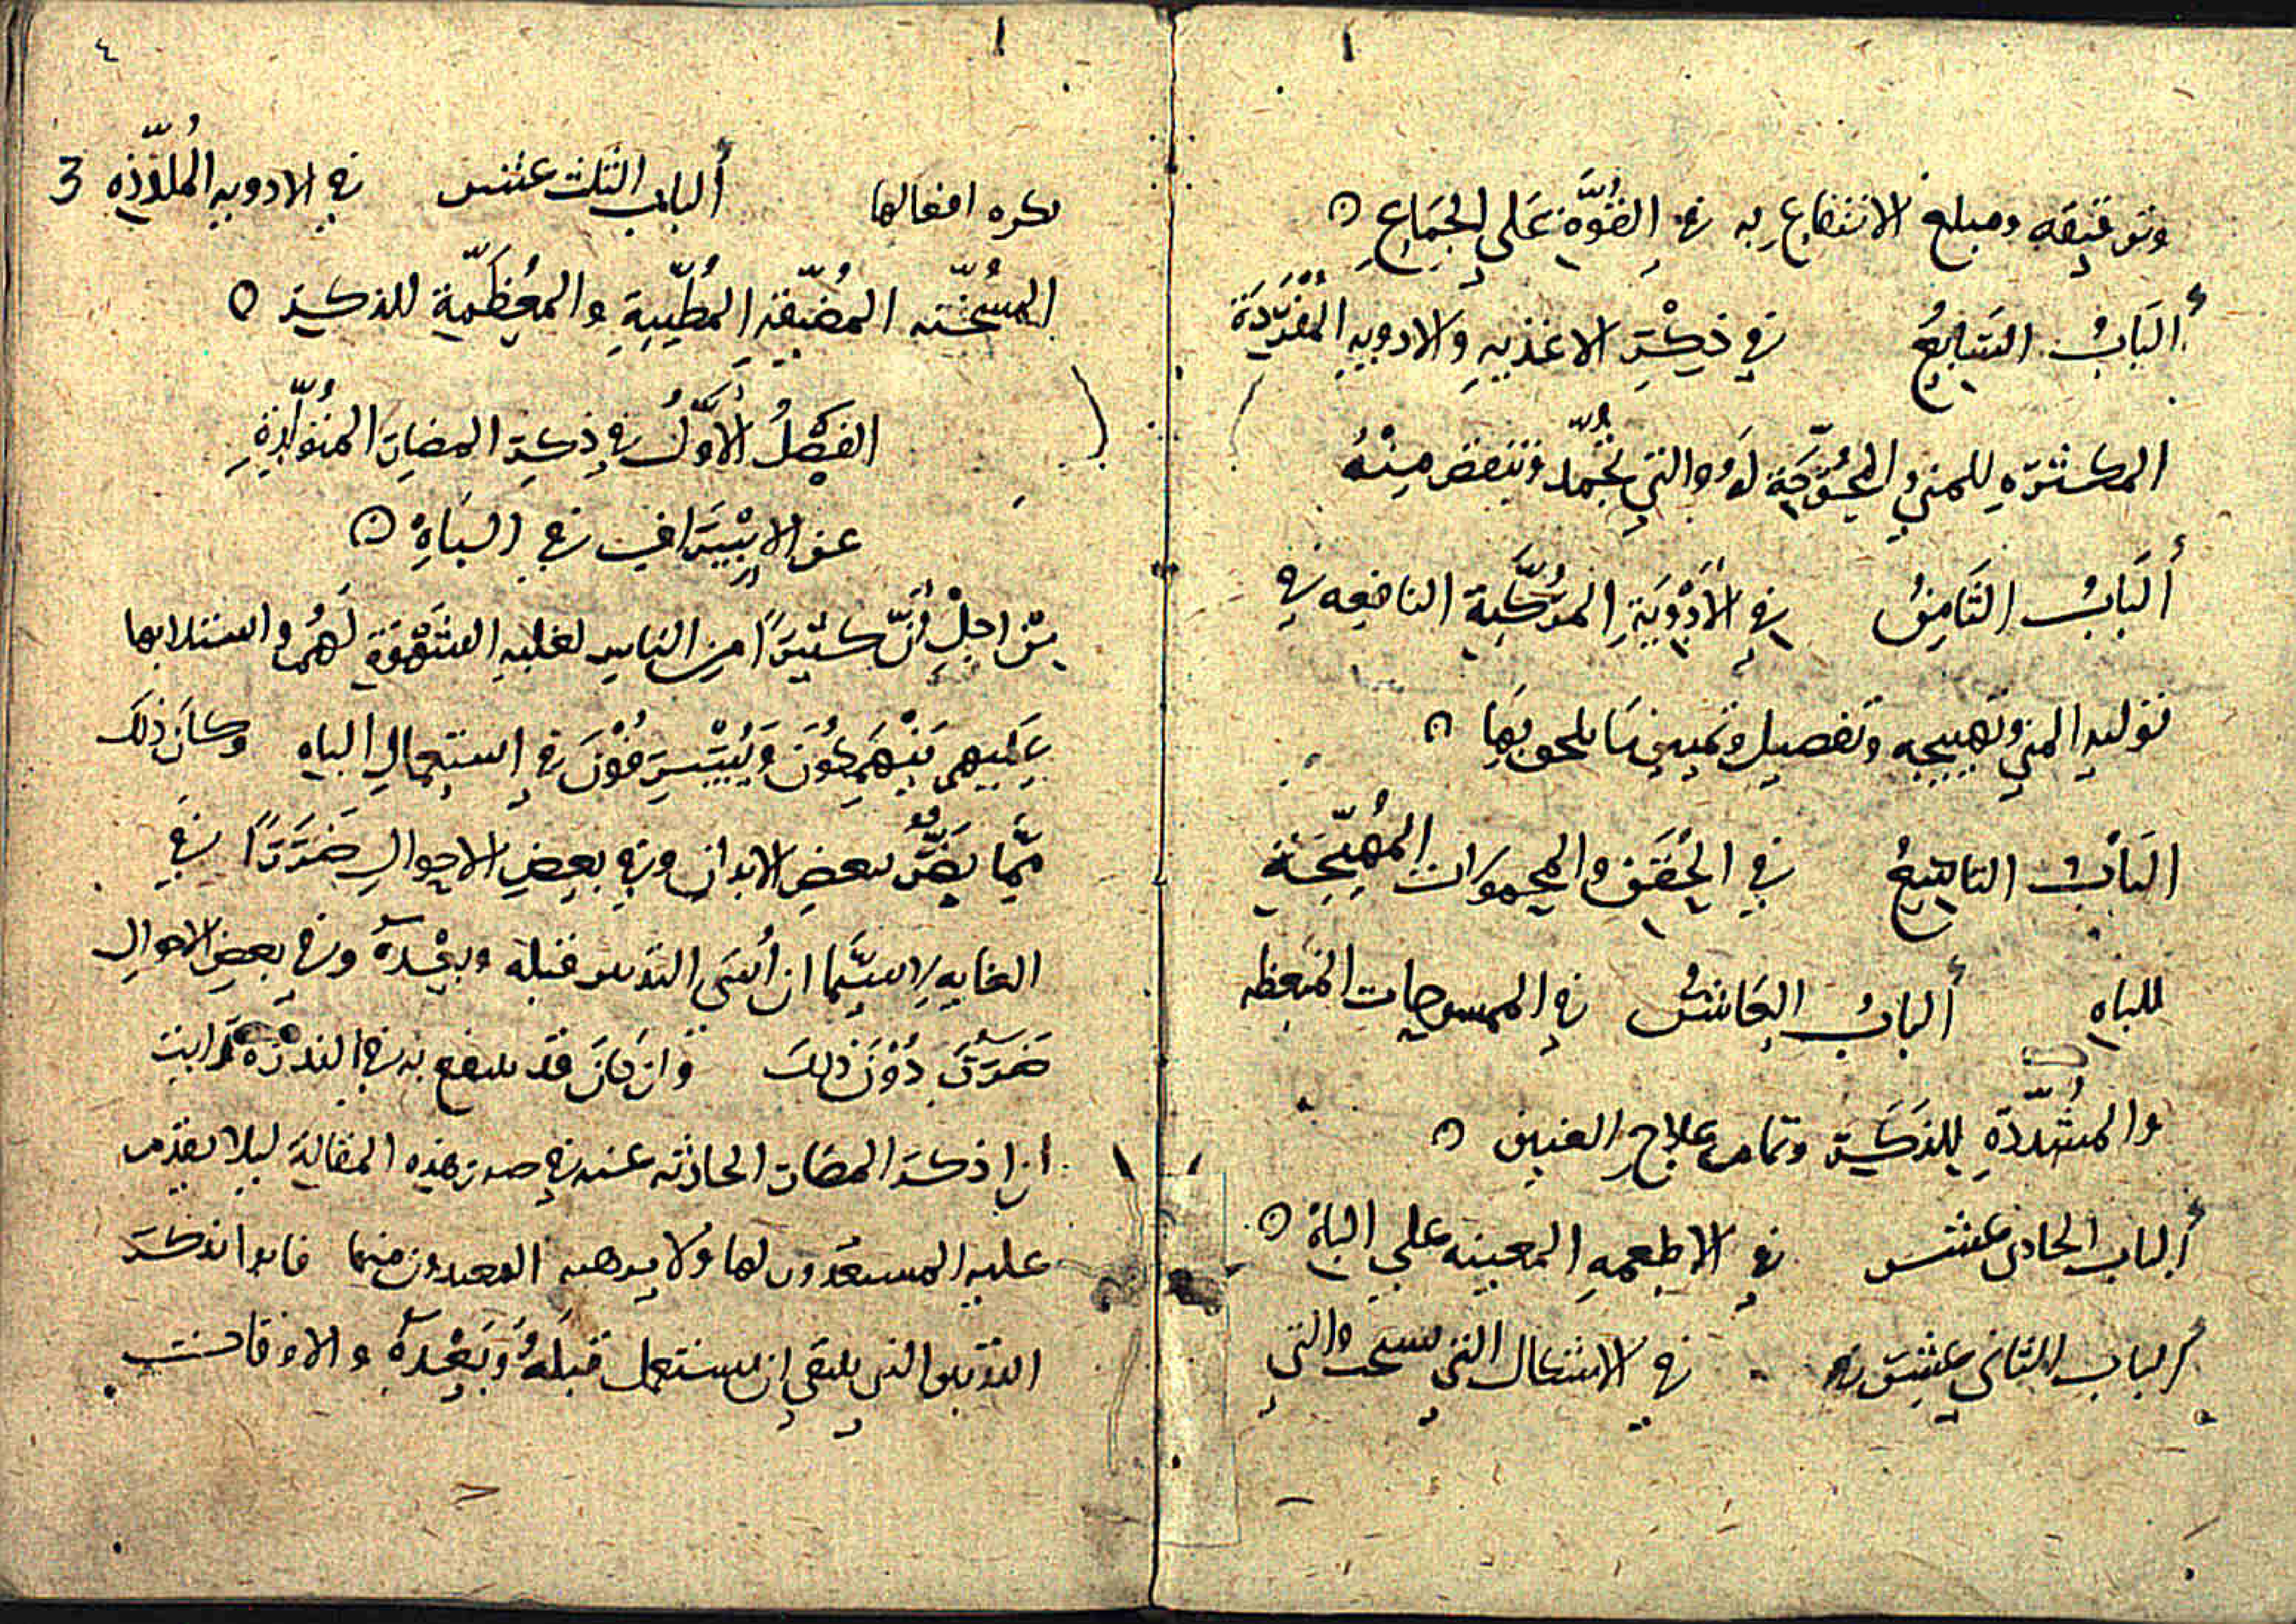 وتوقيفه ومبلغ الانتفاع به في القُوَّةِ عَلى الجِمَاعِ
ألبَابُ السَّابِعُ في ذِكْرِ الاغذيهِ والادويهِ المُفْرَدَة
المكثرهِ للمني والمُحَوِّجَةِ لهُ والتي تُجَمِّد وتنقص مِنْهُ
ألبَابُ الثَّامِنُ في الأَدْوِيَةِ المُركَّبة النافعه في
توليد المني وتهييجه وتفصيل وتمييز مَا يلحق بِهَا
البَابُ التاسِعُ في الحُقَنِ والحمولات المُهَيِّجَةِ
للباهِ ألبابُ العَاشرُ في الممسوحات المنعظه
والمُشَدِّدَةِ للذَكَرِ وتمام علاج العنين
ألباب الحادى عشر في الاطعمهِ المعينه على الباهْ
ألباب الثانى عشر في الاشكال التي تستحب والتي
٤
3
يكره افعالها ألباب الثلث عشر في الادويهِ المُلَذِّذِهِ
المُسَخِّنه المُضَيِّقة المُطَيِّبةِ والمُعَظِّمةِ للذكر
الفَصْلُ الأَوَّلُ في ذِكرِ المضارِ المُتَوَلِّدةِ
عن الاِسْرَافِ في البَاهِ
مِنْ اجلِ أنَّ كثيرًا من الناسِ لغلبهِ الشَهْوَةِ لَهُمْ واستلابها
عَليهم يَنْهَمِكُونَ وَيُسْرِفُوْنَ في إستعمالِ الباه وكان ذلك
مِمَّا يَضُرُّ ببعضِ الابدانِ وفي بعضِ الاحوالِ ضَرَرًا في
الغايه لاسيَّما ان أُسىَ التدبير قبله وبعْدهُ وفي بعضِ الاحوالِ
ضَرَرً دُوْنَ ذلك وان كانَ قد ينتفع به في الندرَهْ رَايت
ان اذكرَ المضار الحادثه عنه في صدر هذه المقالة ليلا يقدم
عليه المستعدون لها ولا يرهبه البعيدون منها فابدا بذكر
التدبير الذي ينبغي ان يستعمل قبلَهُ وبَعْدهُ والاوقات